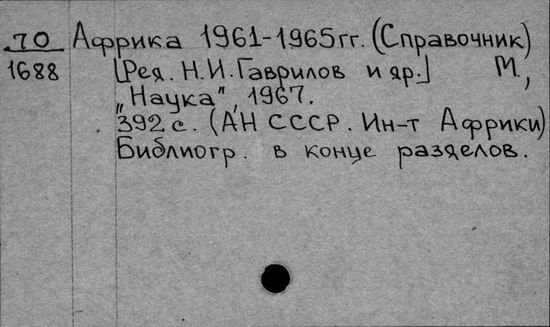 70 Африка 1961-1965гг. (Справочник)
1688 [Ред. Н.И.Гаврилов и др.] М.,
„Наука", 1967.
392 с. (АН СССР. Ин-т Африки)
Библиогр. в конце разделов.